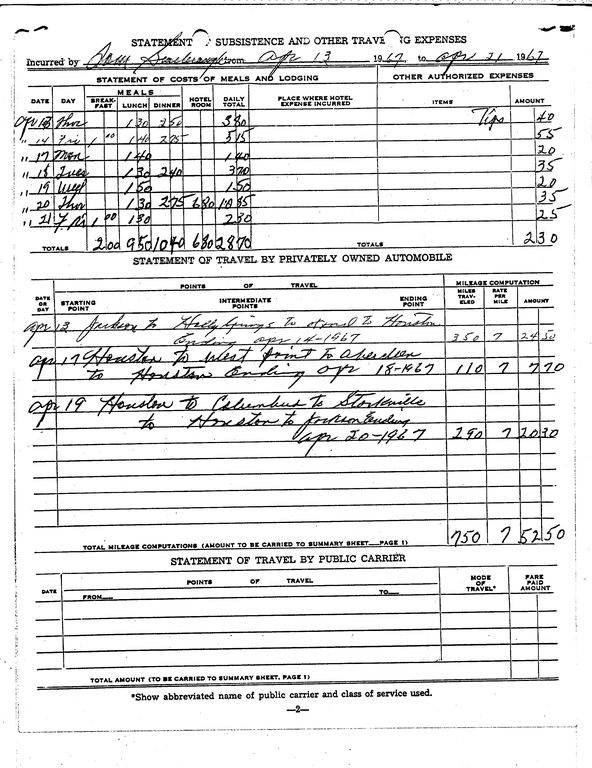 STATEMENT SUBSISTENCE AND OTHER TRAVE NG EXPENSES
Incurred by Tom Scarbrough from Apr 13 1967 to Apr 21 1967
STATEMENT OF COSTS OF MEALS AND LODGING OTHER AUTHORIZED EXPENSES
DATE DAY MEALS BREAK-FAST LUNCH DINNER HOTEL ROOM DAILY TOTAL PLACE WHERE HOTEL EXPENSE INCURRED ITEMS AMOUNT
Apr 13 Thur 1 30 2 50 3 80 Tips 40
" 14 Fri 1 00 1 40 2 75 5 15 55
" 17 Mon 1 40 1 40 20
" 18 Tues 1 30 2 40 3 70 35
" 19 Wed 1 50 1 50 20
" 20 Thur 1 30 2 75 6 80 10 85 35
" 21 Fri 1 00 1 30 2 30 25
TOTALS 2 00 9 50 10 40 6 80 28 70 TOTALS 2 30
STATEMENT OF TRAVEL BY PRIVATELY OWNED AUTOMOBILE
DATE OR DAY POINTS OF TRAVEL MILEAGE COMPUTATION
STARTING POINT INTERMEDIATE POINTS ENDING POINT MILES TRAV-ELED RATE PER MILE AMOUNT
Apr 13 Jackson to Holly Springs to to Houston
Ending Apr 14-1967 350 7 24 50
Apr 17 Houston to West Point to Aberdeen
to Houston Ending Apr 18-1967 110 7 7 70
Apr 19 Houston to Columbus to Starkville
to Houston to Jackson Ending
Apr 20-1967 290 7 20 30
TOTAL MILEAGE COMPUTATIONS (AMOUNT TO BE CARRIED TO SUMMARY SHEET PAGE 1) 750 7 52 50
STATEMENT OF TRAVEL BY PUBLIC CARRIER
DATE POINTS OF TRAVEL MODE OF TRAVEL* FARE PAID AMOUNT
FROM TO
TOTAL AMOUNT (TO BE CARRIED TO SUMMARY SHEET, PAGE 1)
*Show abbreviated name of public carrier and class of service used.
—2—